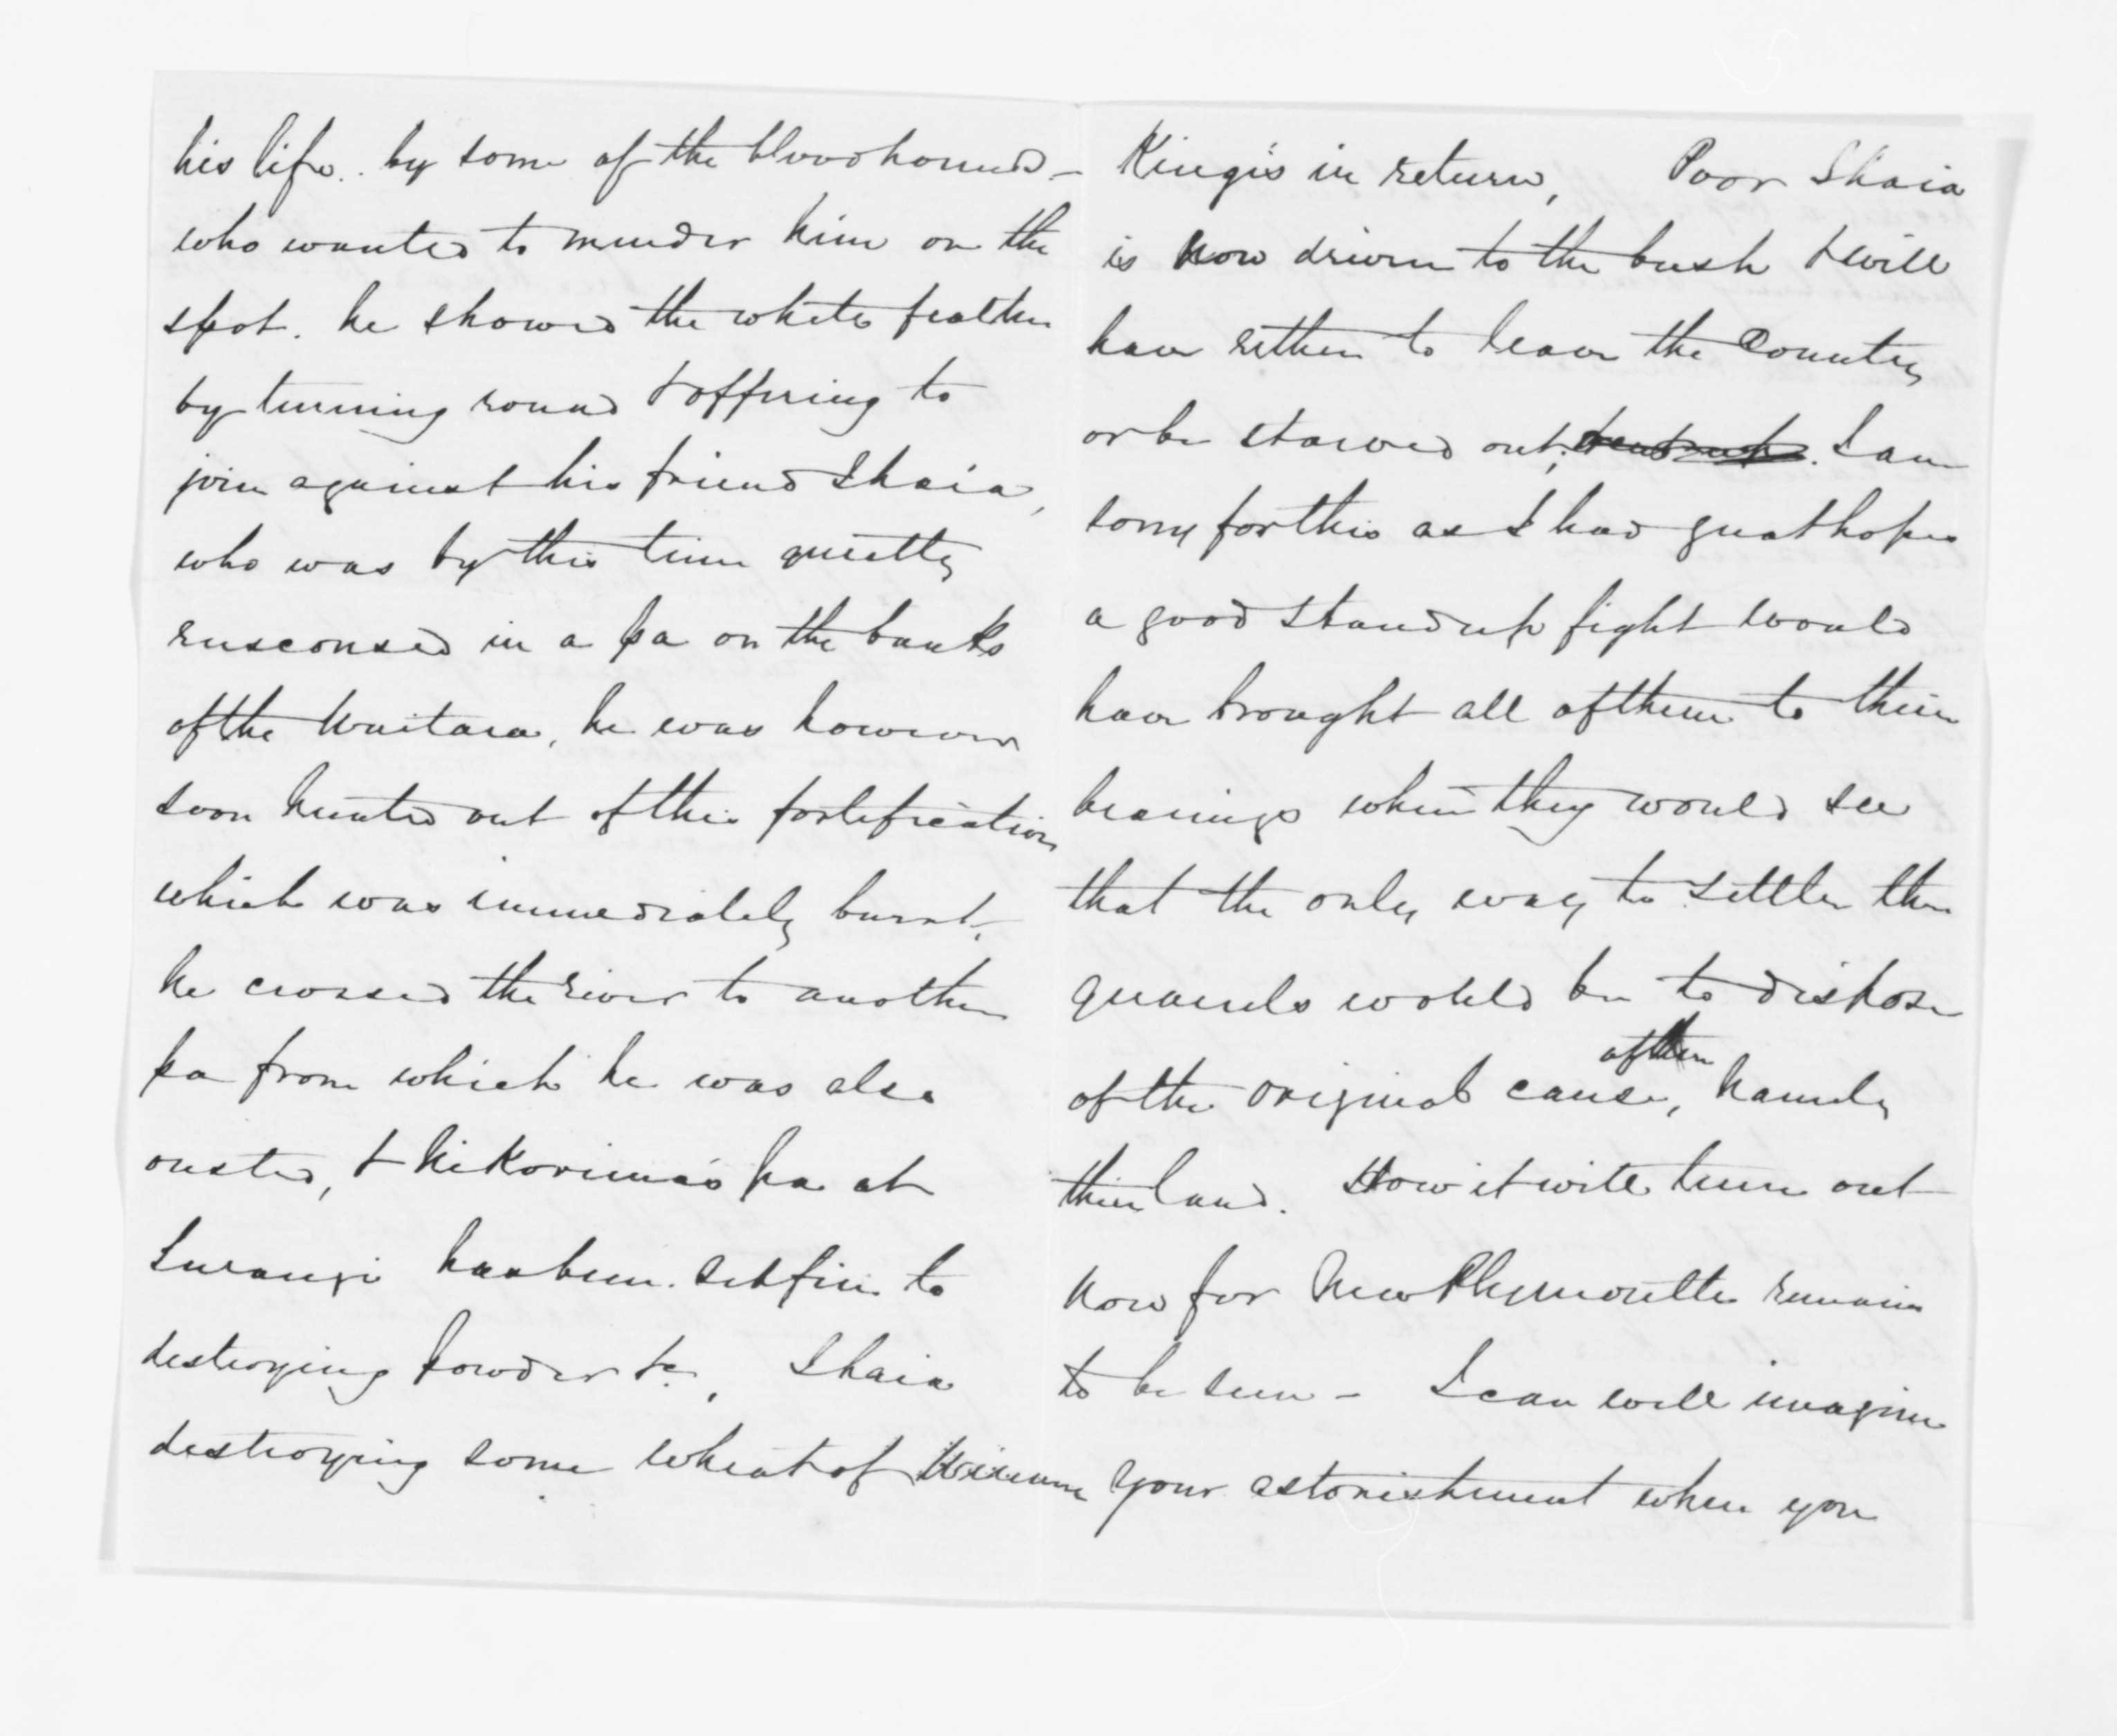 his life.. by some of the bloodhounds -
who wanted to murder him on the
spot. he showed the white feather
by turning round & offering to
join against his friend Ihaia,
who was by this time quietly
ensconsed in a pa on the banks
of the Waitara, he was however
soon hunted out of this fortification
which was immediately burnt,
he crossed the river to another
pa from which he was also
ousted, & Nikorima's pa at
Turangi has been set fire to
destroying powder &c, Ihaia
destroying some wheat of Wiremu
Kingi's in return, Poor Ihaia
is now driven to the bush & will
have either to leave the country
or be starved out, . I am
sorry for this as I had great hopes
a good stand up fight would
have brought all of them to their
bearings when they would see
that the only way to settle the
quarrels would be to dispose
of the original cause of them, namely
their land. How it will turn out
now for New Plymouth remains
to be seen - I can well imagine
your astonishment when you